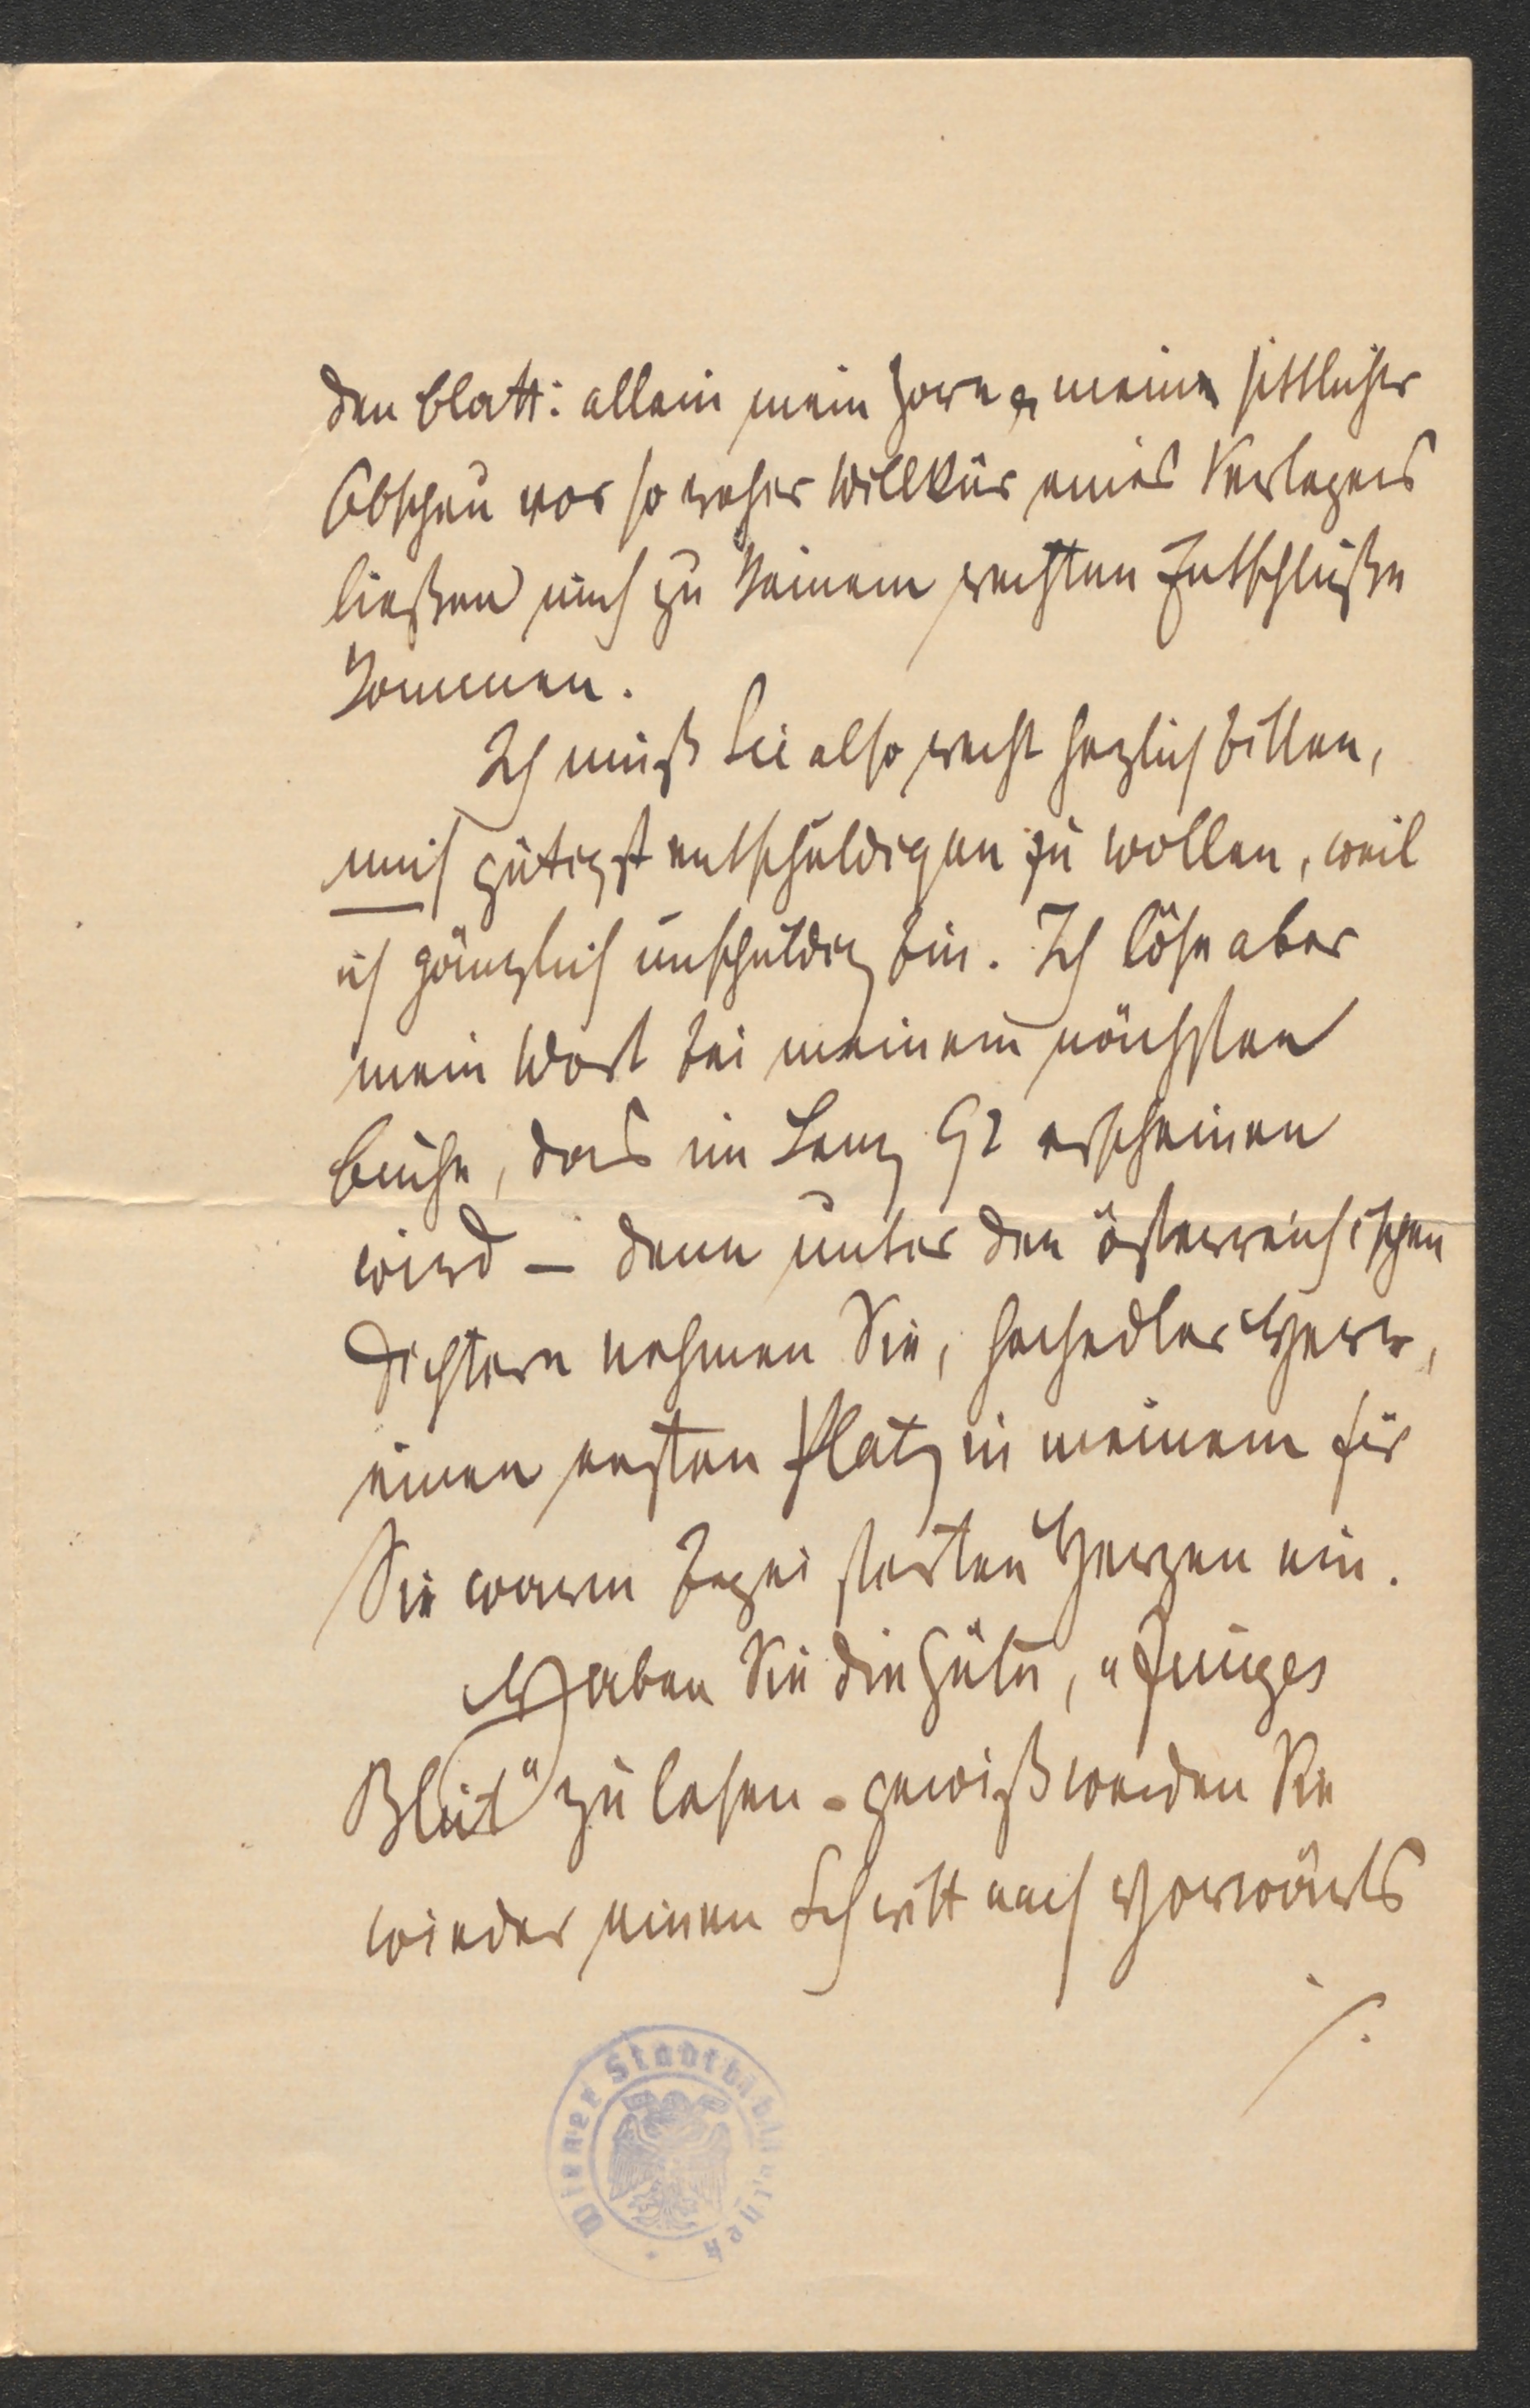 den Blatt: allein mein Zorn & mein sittlicher
Abscheu vor so roher Willkür eines Verlegers
ließen mich zu keinem rechten Entschluße
kommen.
Ich muß Sie also recht herzlich bitten,
mich gütigst entschuldigen zu wollen, weil
ich gänzlich unschuldig bin. Ich löse aber
mein Wort bei meinem nächsten
Buche, das im Lenz 92 erscheinen
wird – denn unter den österreichischen
Dichtern nehmen Sie, hochedler Herr,
einen ersten Platz in meinem für
Sie warm begeisterten Herzen ein.
Haben Sie die Güte, "Junges
Blut" zu lesen - gewiß werden Sie
wieder einen Schritt nach Vorwärts
./.
Wiener Stadtbibliothek